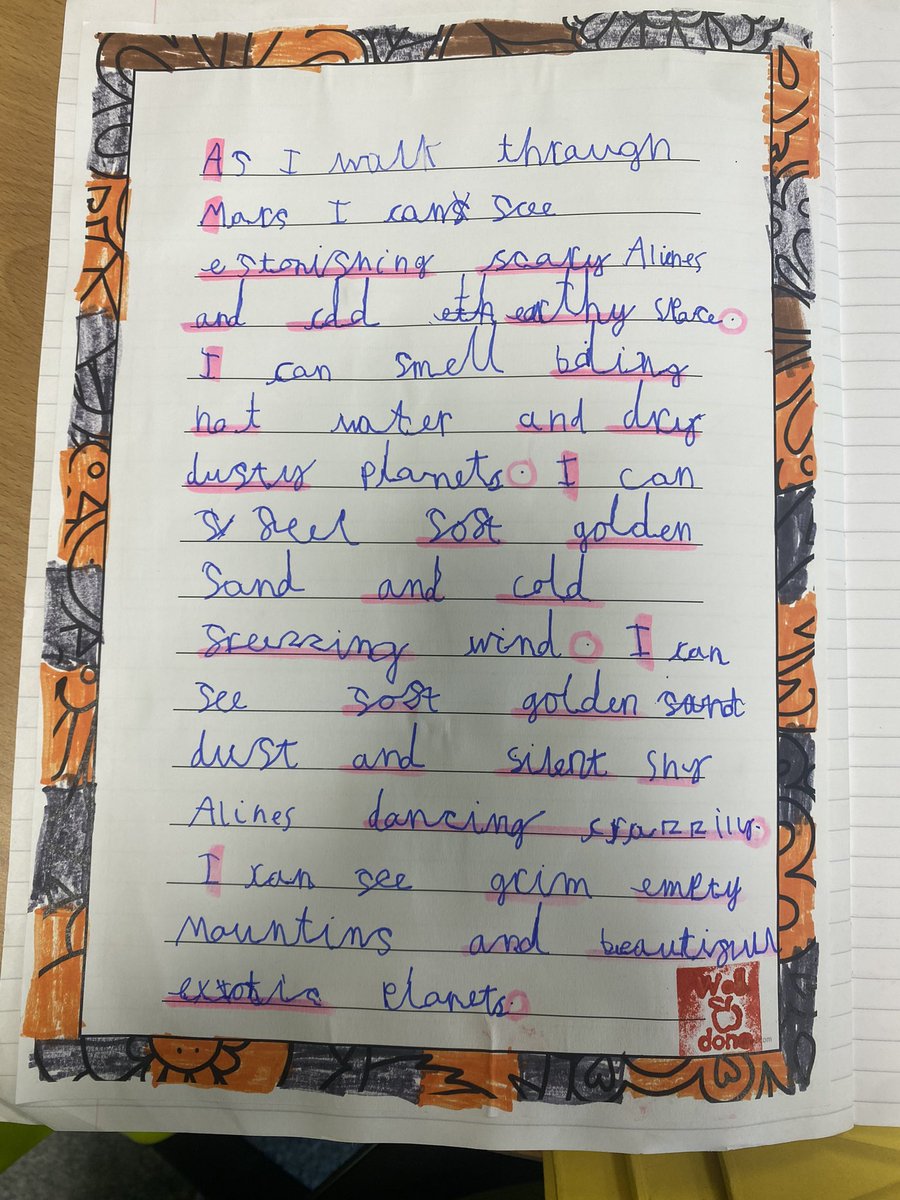 As I walk through
Mars I can see
estonishing scary Alienes
and cold eth earthy space.
I can smell boling
hot water and dry
dusty planets. I can
s feel soft golden
Sand and cold
freezzing wind. I can
see soft golden sand
dust and silent shy
Alines dancing crazzilly.
I can see grim empty
Mountins and beautifull
exsotic planets.
Well
done